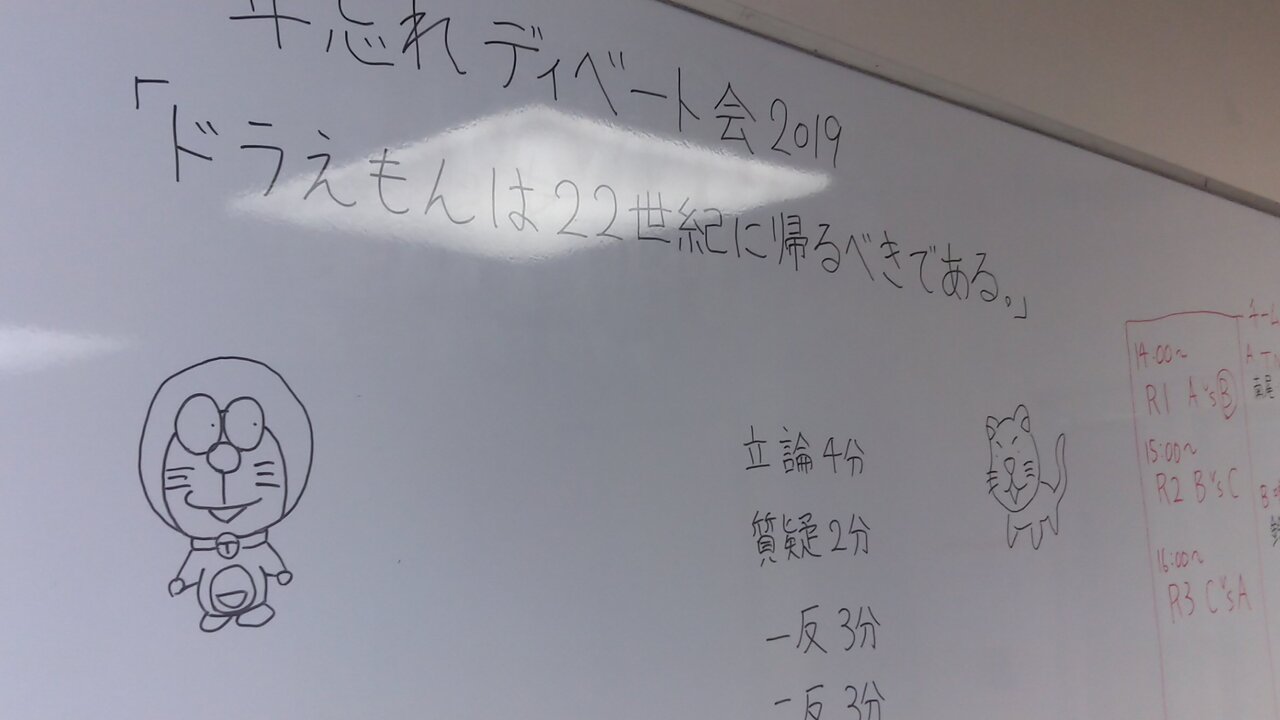 年忘れディベート会2019
「ドラえもんは22世紀に帰るべきである。」
立論4分
質疑2分
一反3分
二反3分
14:00~
R1 A vs B
15:00~
R2 B vs C
16:00~
R3 C vs A
チーム
A
B